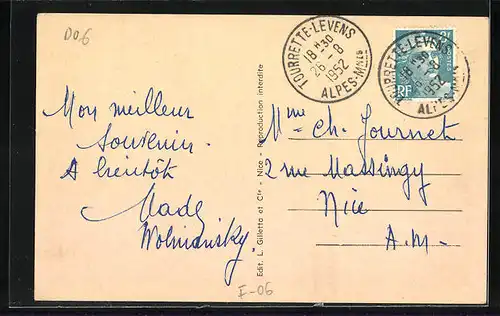 D06
TOURRETTE-LEVENS
18 H 30
26 - 8
1952
ALPES-MMES
TOURRETTE-LEVENS
18 H 30
1952
ALPES-MMES
RF
Mon meilleur
souvenir.
A bientôt
Made
Wolniansky.
Edit. L. Gilletta et Cie - Nice - Reproduction interdite
Mme Ch. Journet
2 rue Massingy
Nice
A.M.
F-06